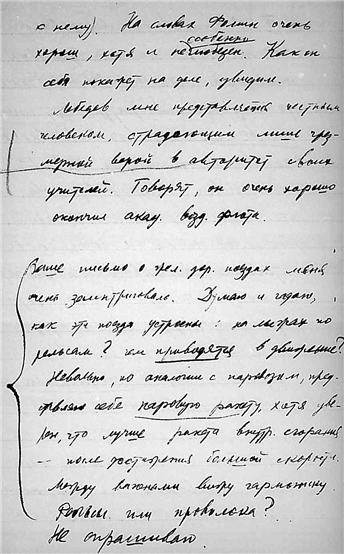 к нему). На словах Фомин очень
особенно
хорош, хотя и не Как он
себя покажет на деле, увидим.
Лебедев мне представляется честным
человеком, страдающим лише чрез-
мерной верой в авторитет своих
учителей. Говорят, он очень хорошо
окончил акад. возд. флота.
Ваше письмо о жел. дор. поездах меня
очень заинтриговало. Думаю и гадаю,
как эти поезда устроены: на лыжах по
рельсам? чем приводятся в движение?
Невольно, по аналогии с паровозом, пред-
ставляю себе паровую ракету, хотя уве-
рен, что лучше ракета внутр. сгорания
— после достижения большой скорости.
Между вагонами вижу гармошку.
или проволока?
Не спрашиваю